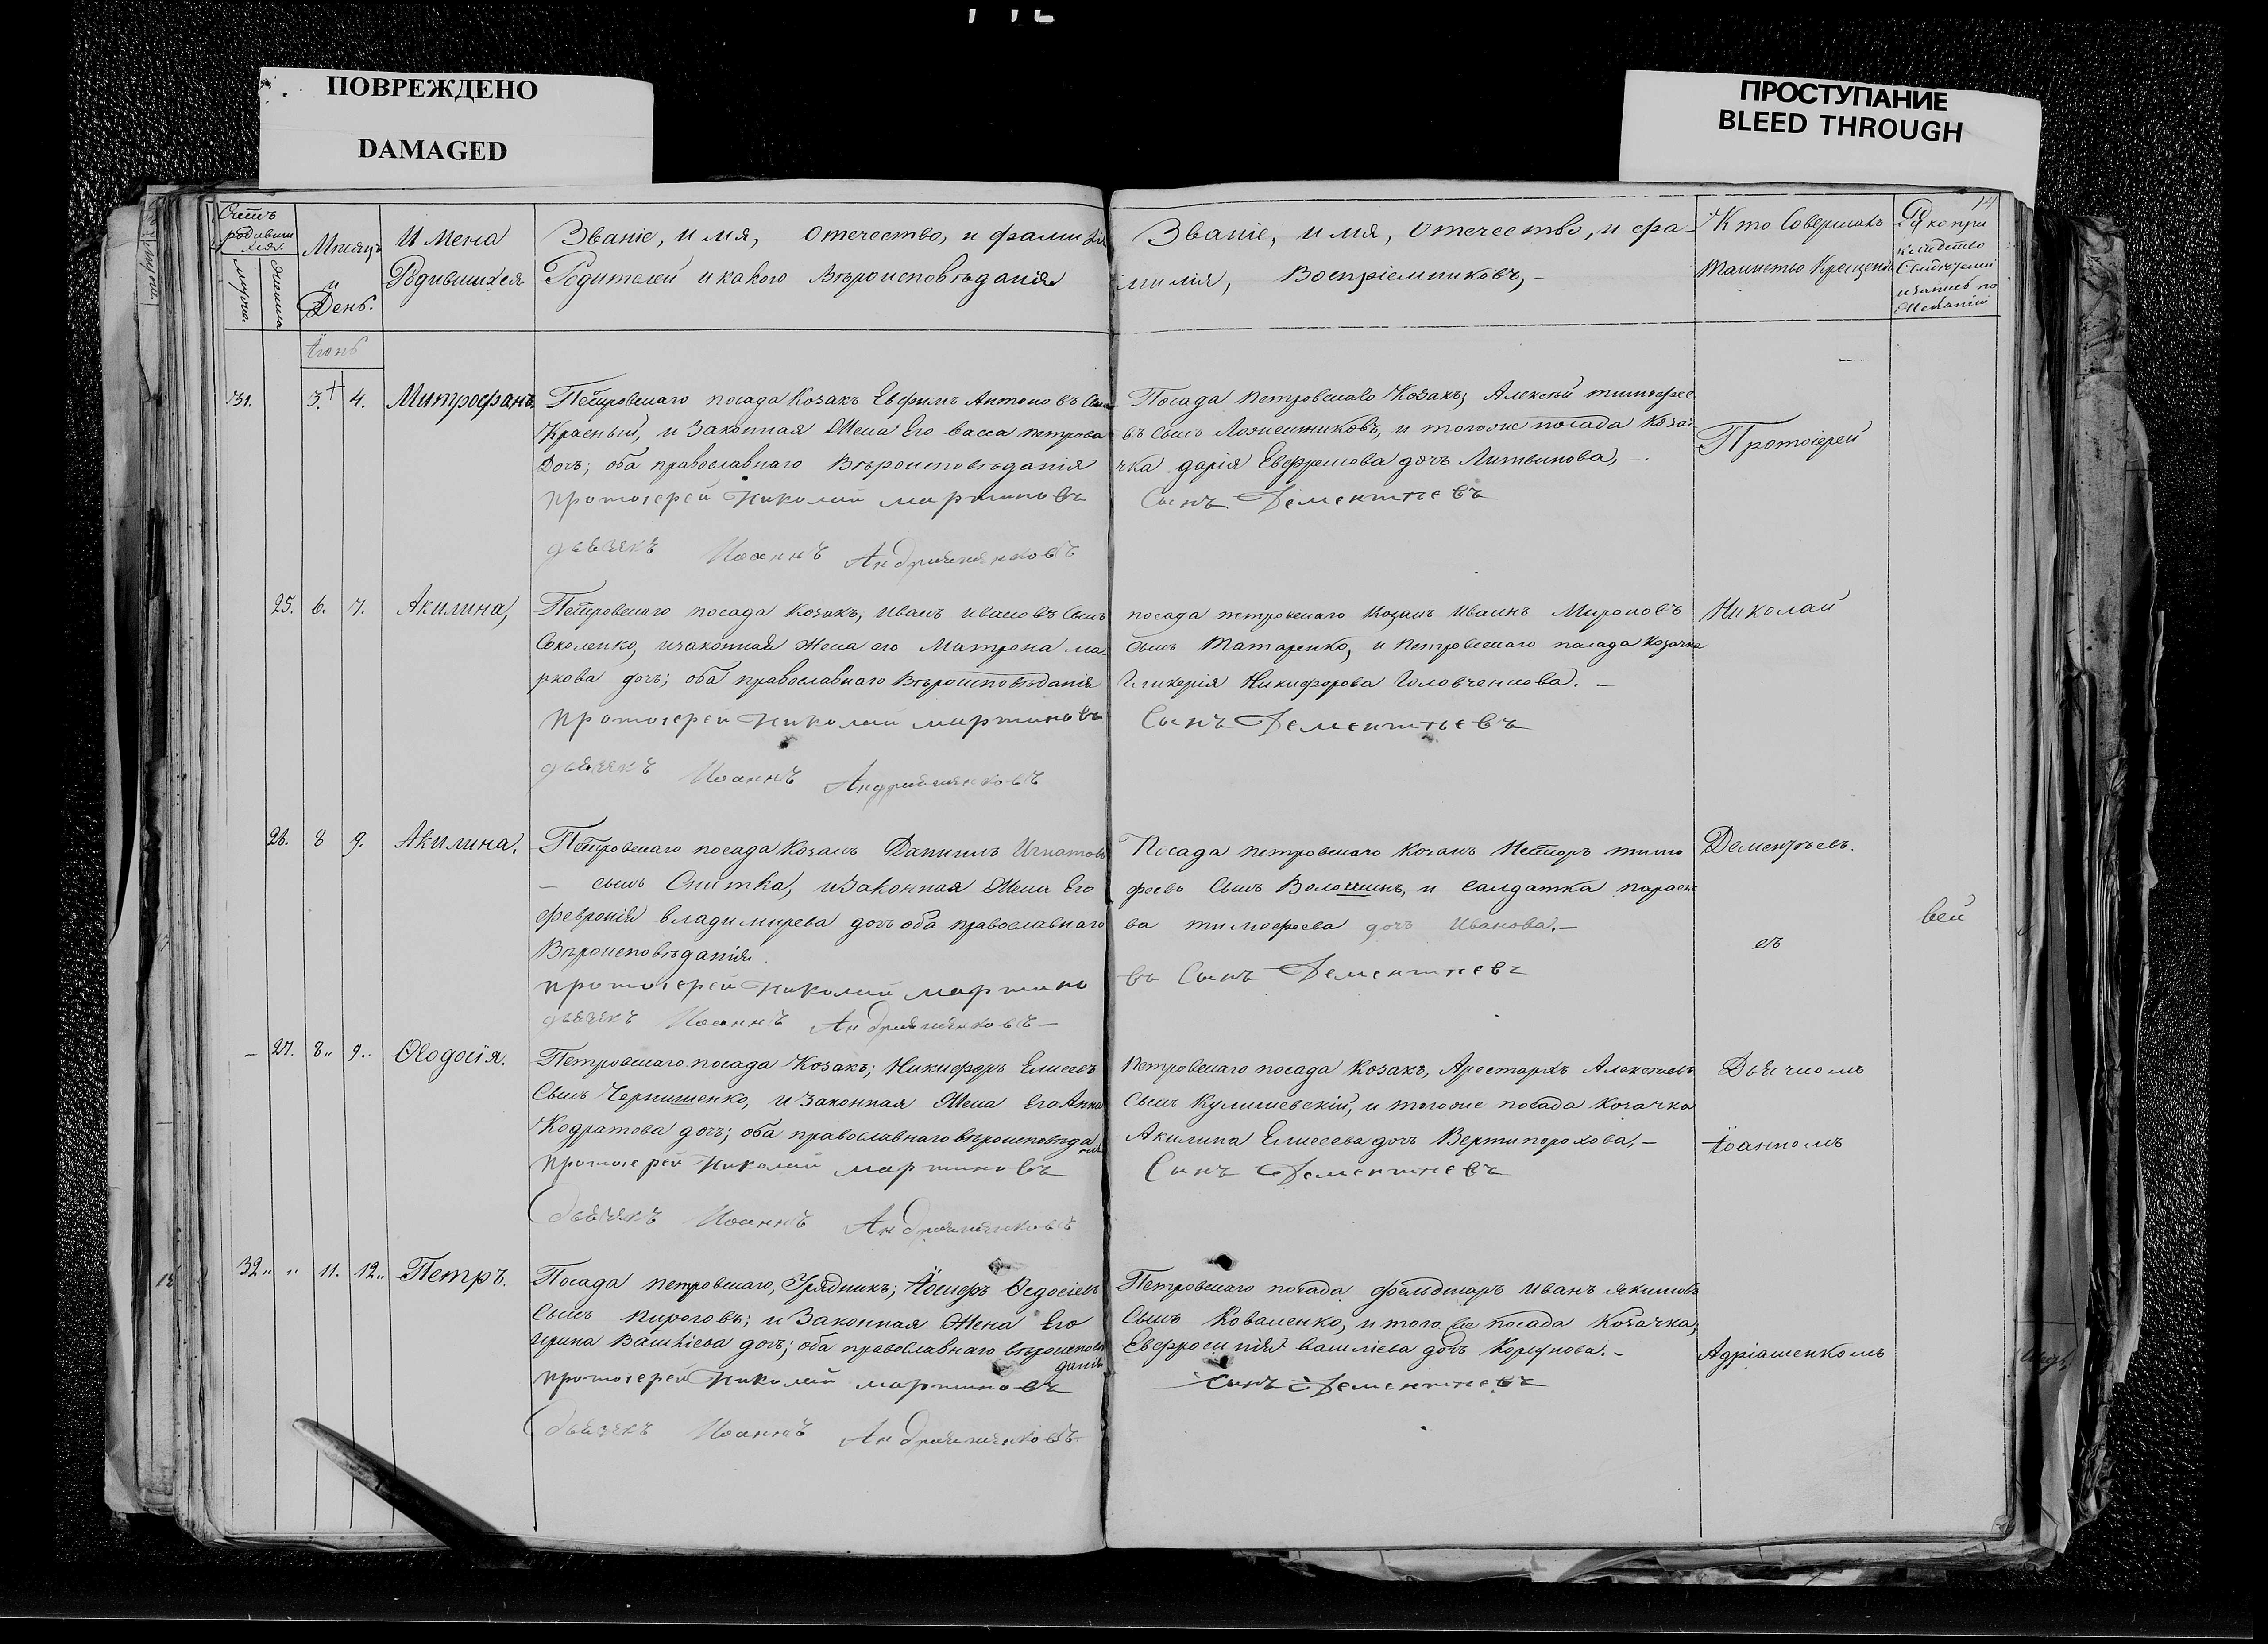 ПОВРЕЖДЕНО
DAMAGED
ПРОСТУПАНИЕ
BLEED THROUGH
Счетъ родившихся.
мужеска.
женска.
Мѣсяцъ и День.
Имена Родившихся
Званіе, имя, отечество, и фамилія
Родителей и какого Вѣроисповѣданія
Званіе, имя, отечество, и фа-
милія, Воспріемниковъ,-
Кто Совершалъ
таинство Крещенія
Іюнь
31. 3. 4. Митрофанъ.
Петровскаго посада Козакъ Евфимъ Антоновъ Сынъ
Красный, и Законная Жена Его васса петрова
Дочь; оба православнаго Вѣроисповѣданія
протоіерей Николай мартиновъ
дьячекъ Иоаннъ Андріяшенковъ
Посада петровскаго Козакъ; Алексѣй тимофее
въ сынъ Ложешниковъ, и тогоже посада Коза-
чка дарія Евфремова дочь Литвинова,-.
Сынъ Дементьевъ
Протоіерей
25. 6. 7. Акилина,
Петровскаго посада Козакъ, Иванъ ивановъ Сынъ
Соколенко, изаконная Жена его Матрона ма-
ркова дочь; оба православнаго Вѣроисповѣданія
протоіерей Николай мартиновъ
дьячекъ Иоаннъ Андріяшенковъ
посада петровскаго Козакъ Иванъ Мироновъ
сынъ Татаренко, и Петровскаго посада Козачка
Гликерія Никифорова Головченкова.-
Сынъ Дементьевъ
Николай
26. 8 9. Акилина.
Петровскаго посада Козакъ Даниилъ Игнатовъ
- сынъ Снитка, изаконная Жена Его
февронія владимирева дочь оба православнаго
Вѣроисповѣданія.
протоіерей Николай мартино
дьячекъ Иоаннъ Андріяшенковъ-
Посада петровскаго Козакъ Несторъ тимо
феевъ Сынъ Волошинъ, и салдатка параске
ва тимофеева дочь Иванова.-
въ Сынъ Дементьевъ
Дементьевъ.
съ
вей
- 27. 8.. 9.. Ѳеодосія.
Петровскаго посада Козакъ; Никифоръ Елисеевъ
Сынъ Чернишенко, и Законная Жена Его Анна
Кодратова дочь; оба православнаго вѣроисповѣда
нія
протоіерей Николай мартиновъ
дьячекъ Иоаннъ Андріяшенковъ
Петровскаго посада Козакъ, Арестархъ Алексѣевъ
Сынъ Кулишевскій, и тогоже посада Козачка
Акилина Елисеева дочь Вертипорохова,-
Сынъ Дементьевъ
Дьячкомъ
Іоанномъ
32.. .. 11. 12.. Петръ.
Посада петровскаго, Урядникъ; Іосифъ Ѳедосіевъ
Сынъ Пироговъ; и Законная Жена Его
ирина Васил͏іева дочь; оба православнаго вѣроисповѣ
данія
протоіерей Николай мартиновъ
дьячекъ Иоаннъ Андріяшенковъ
Петровскаго посада фельдшаръ Иванъ якимовъ
Сынъ Коваленко, и того же посада Козачка,
Евфросинія васил͏іева дочь Корсунова.-
Сынъ Дементьевъ
Адріашенкомъ